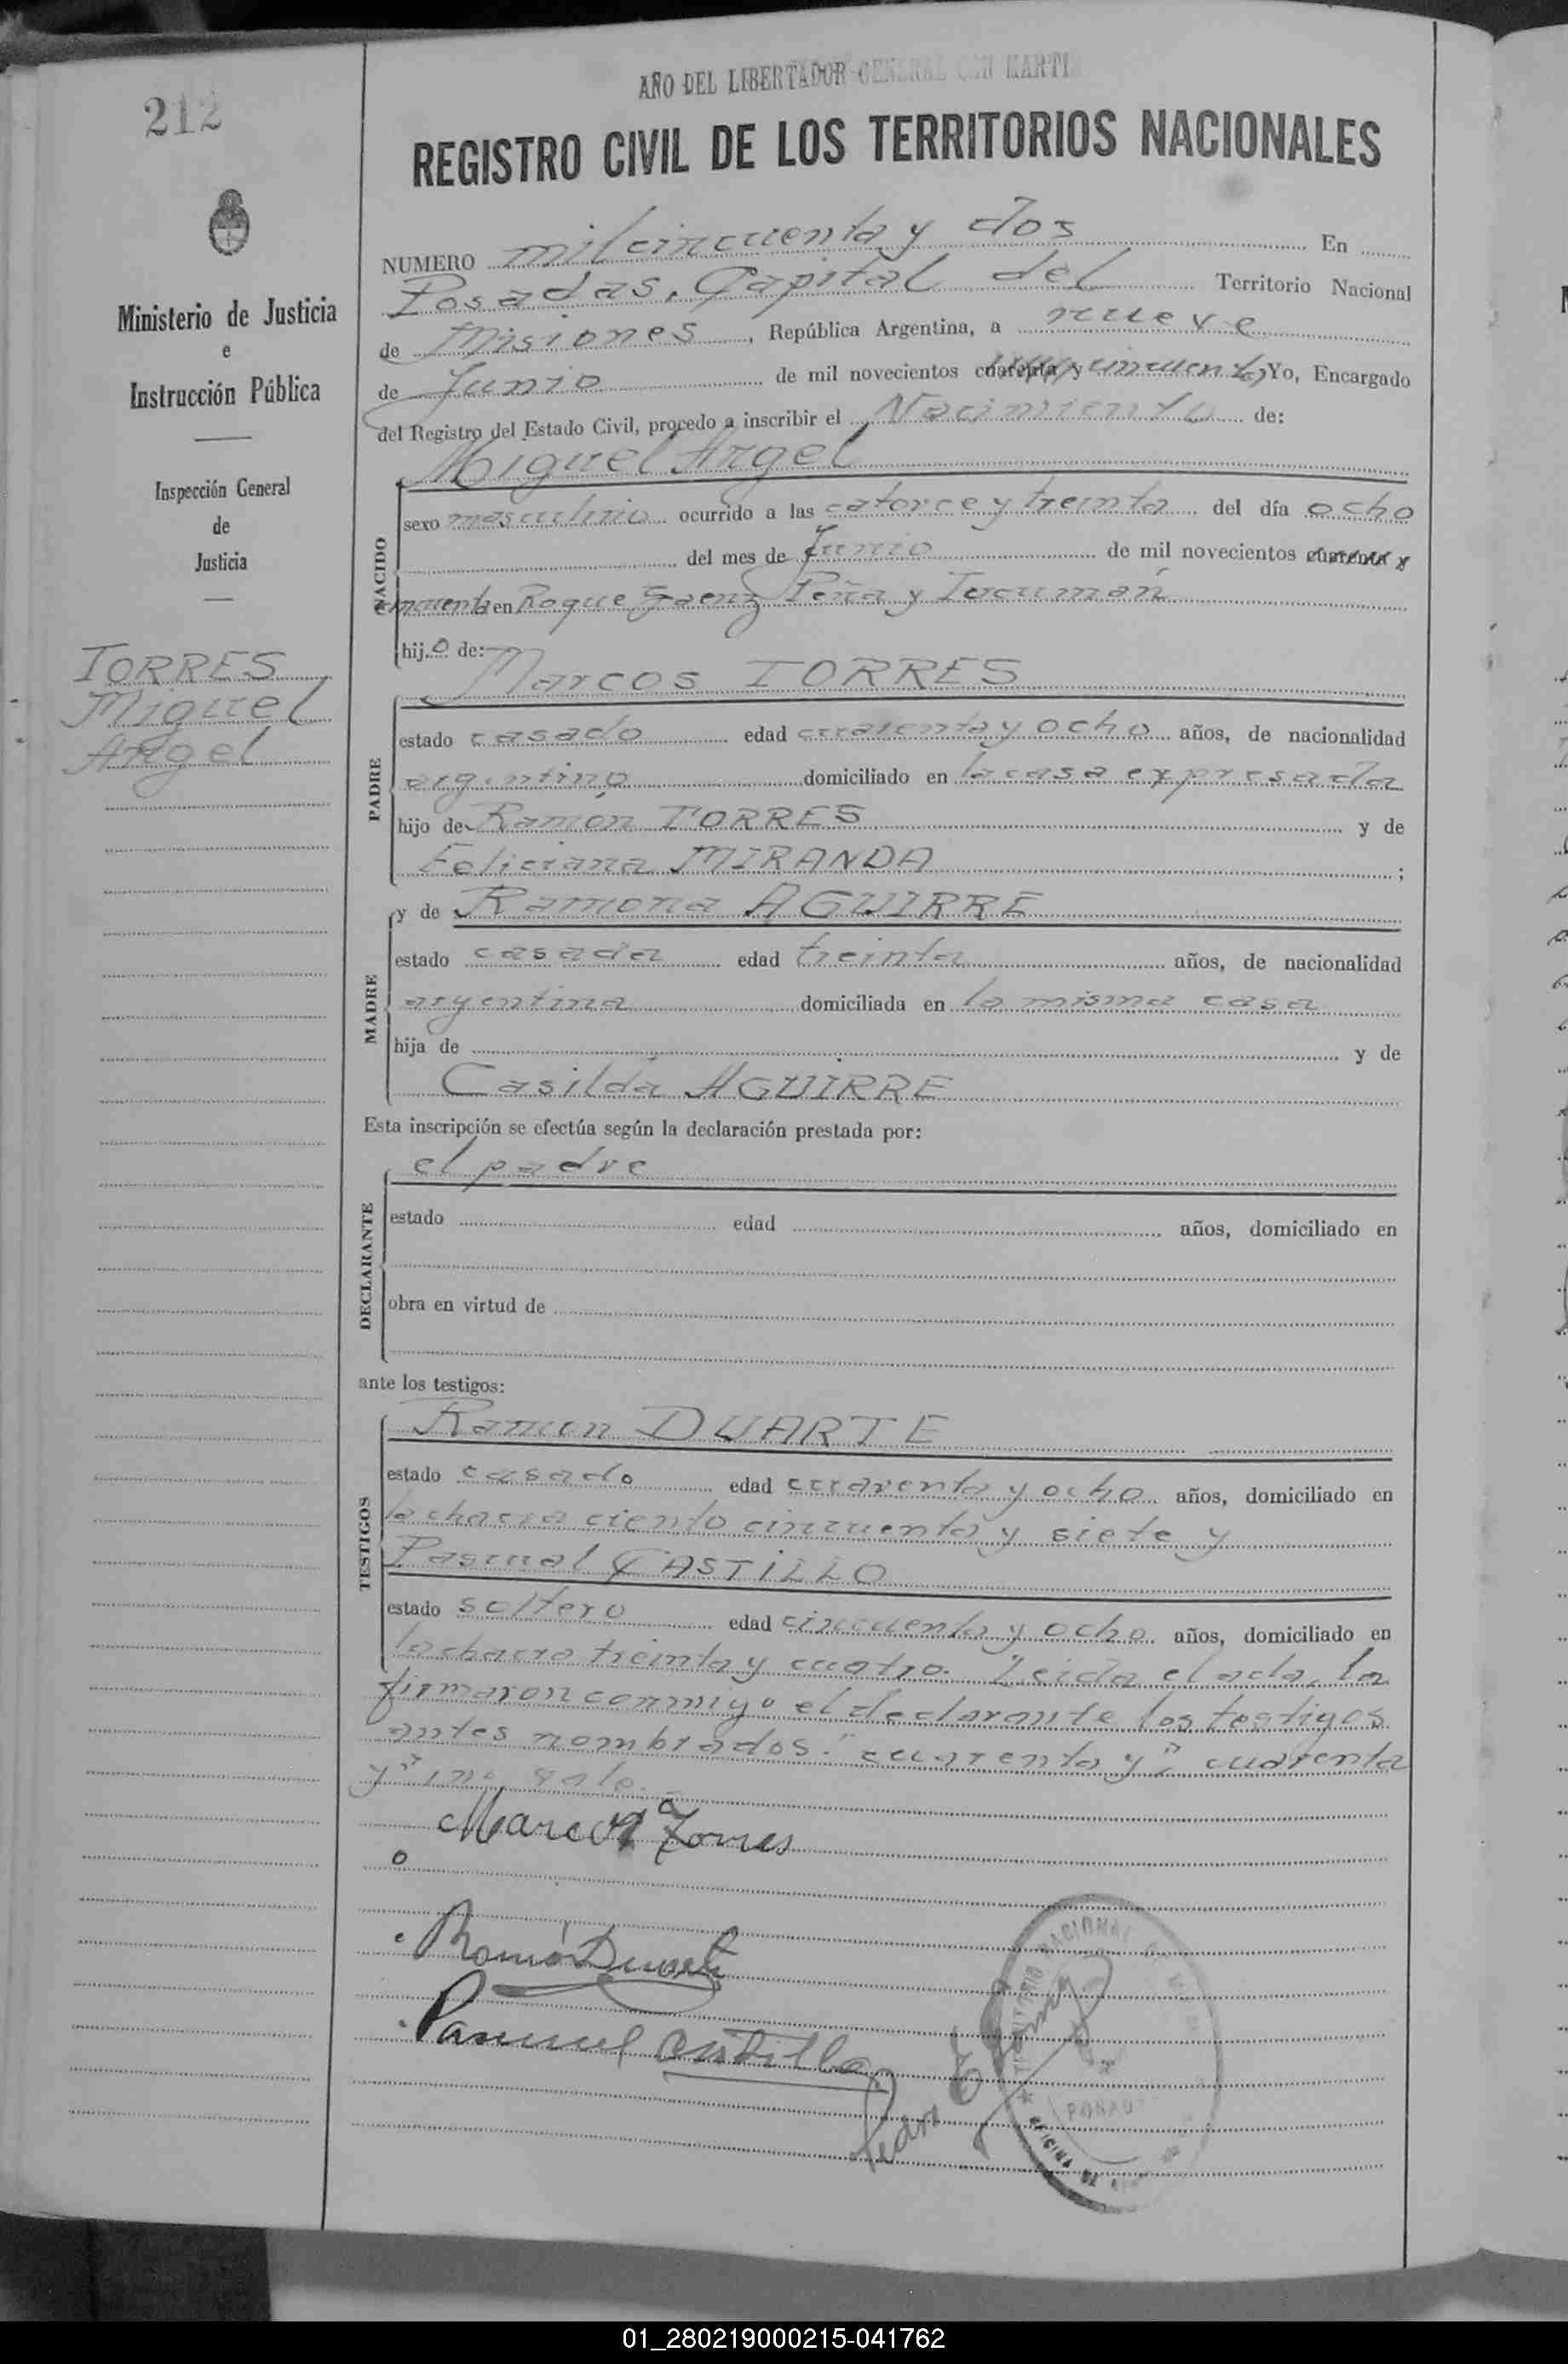 AÑO DEL LIBERTADOR GENERAL SAN MARTI
212
REGISTRO CIVIL DE LOS TERRITORIOS NACIONALES
Ministerio de Justicia
e
Instrucción Pública
Inspección General
de
Justicia
TORRES
Miguel
Angel
NUMERO mil cincuenta y dos En
Posadas, Capital del Territorio Nacional
de Misiones, República Argentina, a nueve
de Junio de mil novecientos cuarenta y cincuenta Yo, Encargado
del Registro del Estado Civil, procedo a inscribir el Nacimiento de:
Miguel Angel
NACIDO
sexo masculino ocurrido a las catorce y treinta del día ocho
del mes de Junio de mil novecientos cuarenta y
cincuenta en Roque Saenz Peña y Tucumán
hijo de:
Marcos TORRES
PADRE
estado casado edad cuarenta y ocho años, de nacionalidad
argentino domiciliado en la casa expresada
hijo de Ramón TORRES y de
Feliciana MIRANDA;
MADRE
y de Ramona AGUIRRE
estado casada edad treinta años, de nacionalidad
argentina domiciliada en la misma casa
hija de y de
Casilda AGUIRRE
Esta inscripción se efectúa según la declaración prestada por:
el padre
DECLARANTE
estado edad años, domiciliado en
obra en virtud de
ante los testigos:
TESTIGOS
Ramon DUARTE
estado casado edad cuarenta y ocho años, domiciliado en
la chacra ciento cincuenta y siete y
Pascual CASTILLO
estado soltero edad cincuenta y ocho años, domiciliado en
la chacra treinta y cuatro. Leida el acta, la
firmaron conmigo el declarante los testigos
antes nombrados. "cuarenta y", "cuarenta
y" vale.
Marcos Torres
Ramón Duarte
Pascual Castillo
Pedro
NACIONAL
POSADAS
OFICINA DE
01_280219000215-041762